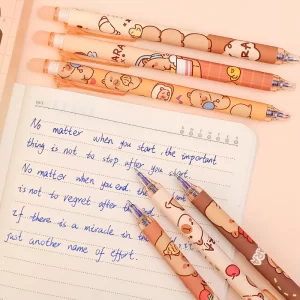 No matter when you start. the important
thing is not to stop after you start.
No matter when you end. the
is not to regret after the
If there is a miracle in the
just another name of effort.